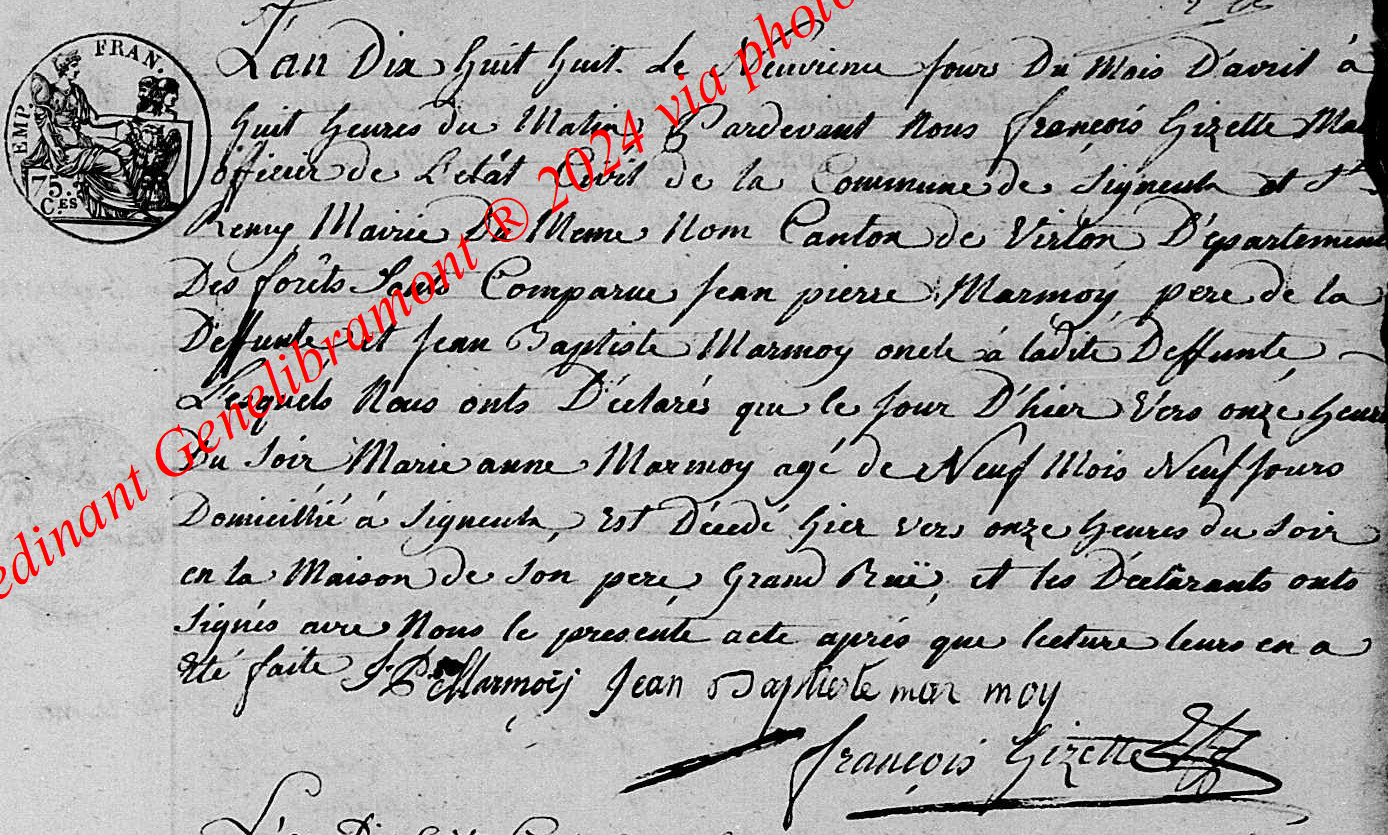 FRAN.
EMP.
75.
C.ES
L'an Dix huit huit. Le Neuvieme jours Du Mois D'avril à
huit heures du Matin Pardevant Nous françois Gizette Ma
officier de L'etât Civil de la Commune de Signeulx et St
Remy Mairie Du Meme Nom Canton de Virton Département
Des forêts Sont Comparue Jean pierre Marmoÿ pere de la
Deffunte et Jean Baptiste Marmoy oncle à ladite Deffunte
Lesquels Nous onts Déclarés que le Jour D'hier Vers onze heures
Du Soir Marie anne Marmoy agé de Neuf Mois Neuf Jours
Domicillié à Signeulx, Est Décedé hier vers onze heures du Soir
en la Maison de Son pere, Grand Ruë, et les Déclarants onts
Signés avec Nous le présente acte aprés que lecture leurs en a
Eté faite J. P. Marmoÿ Jean Baptiste mar moy
françois Gizette
edinant Genelibramont ® 2024 via photo